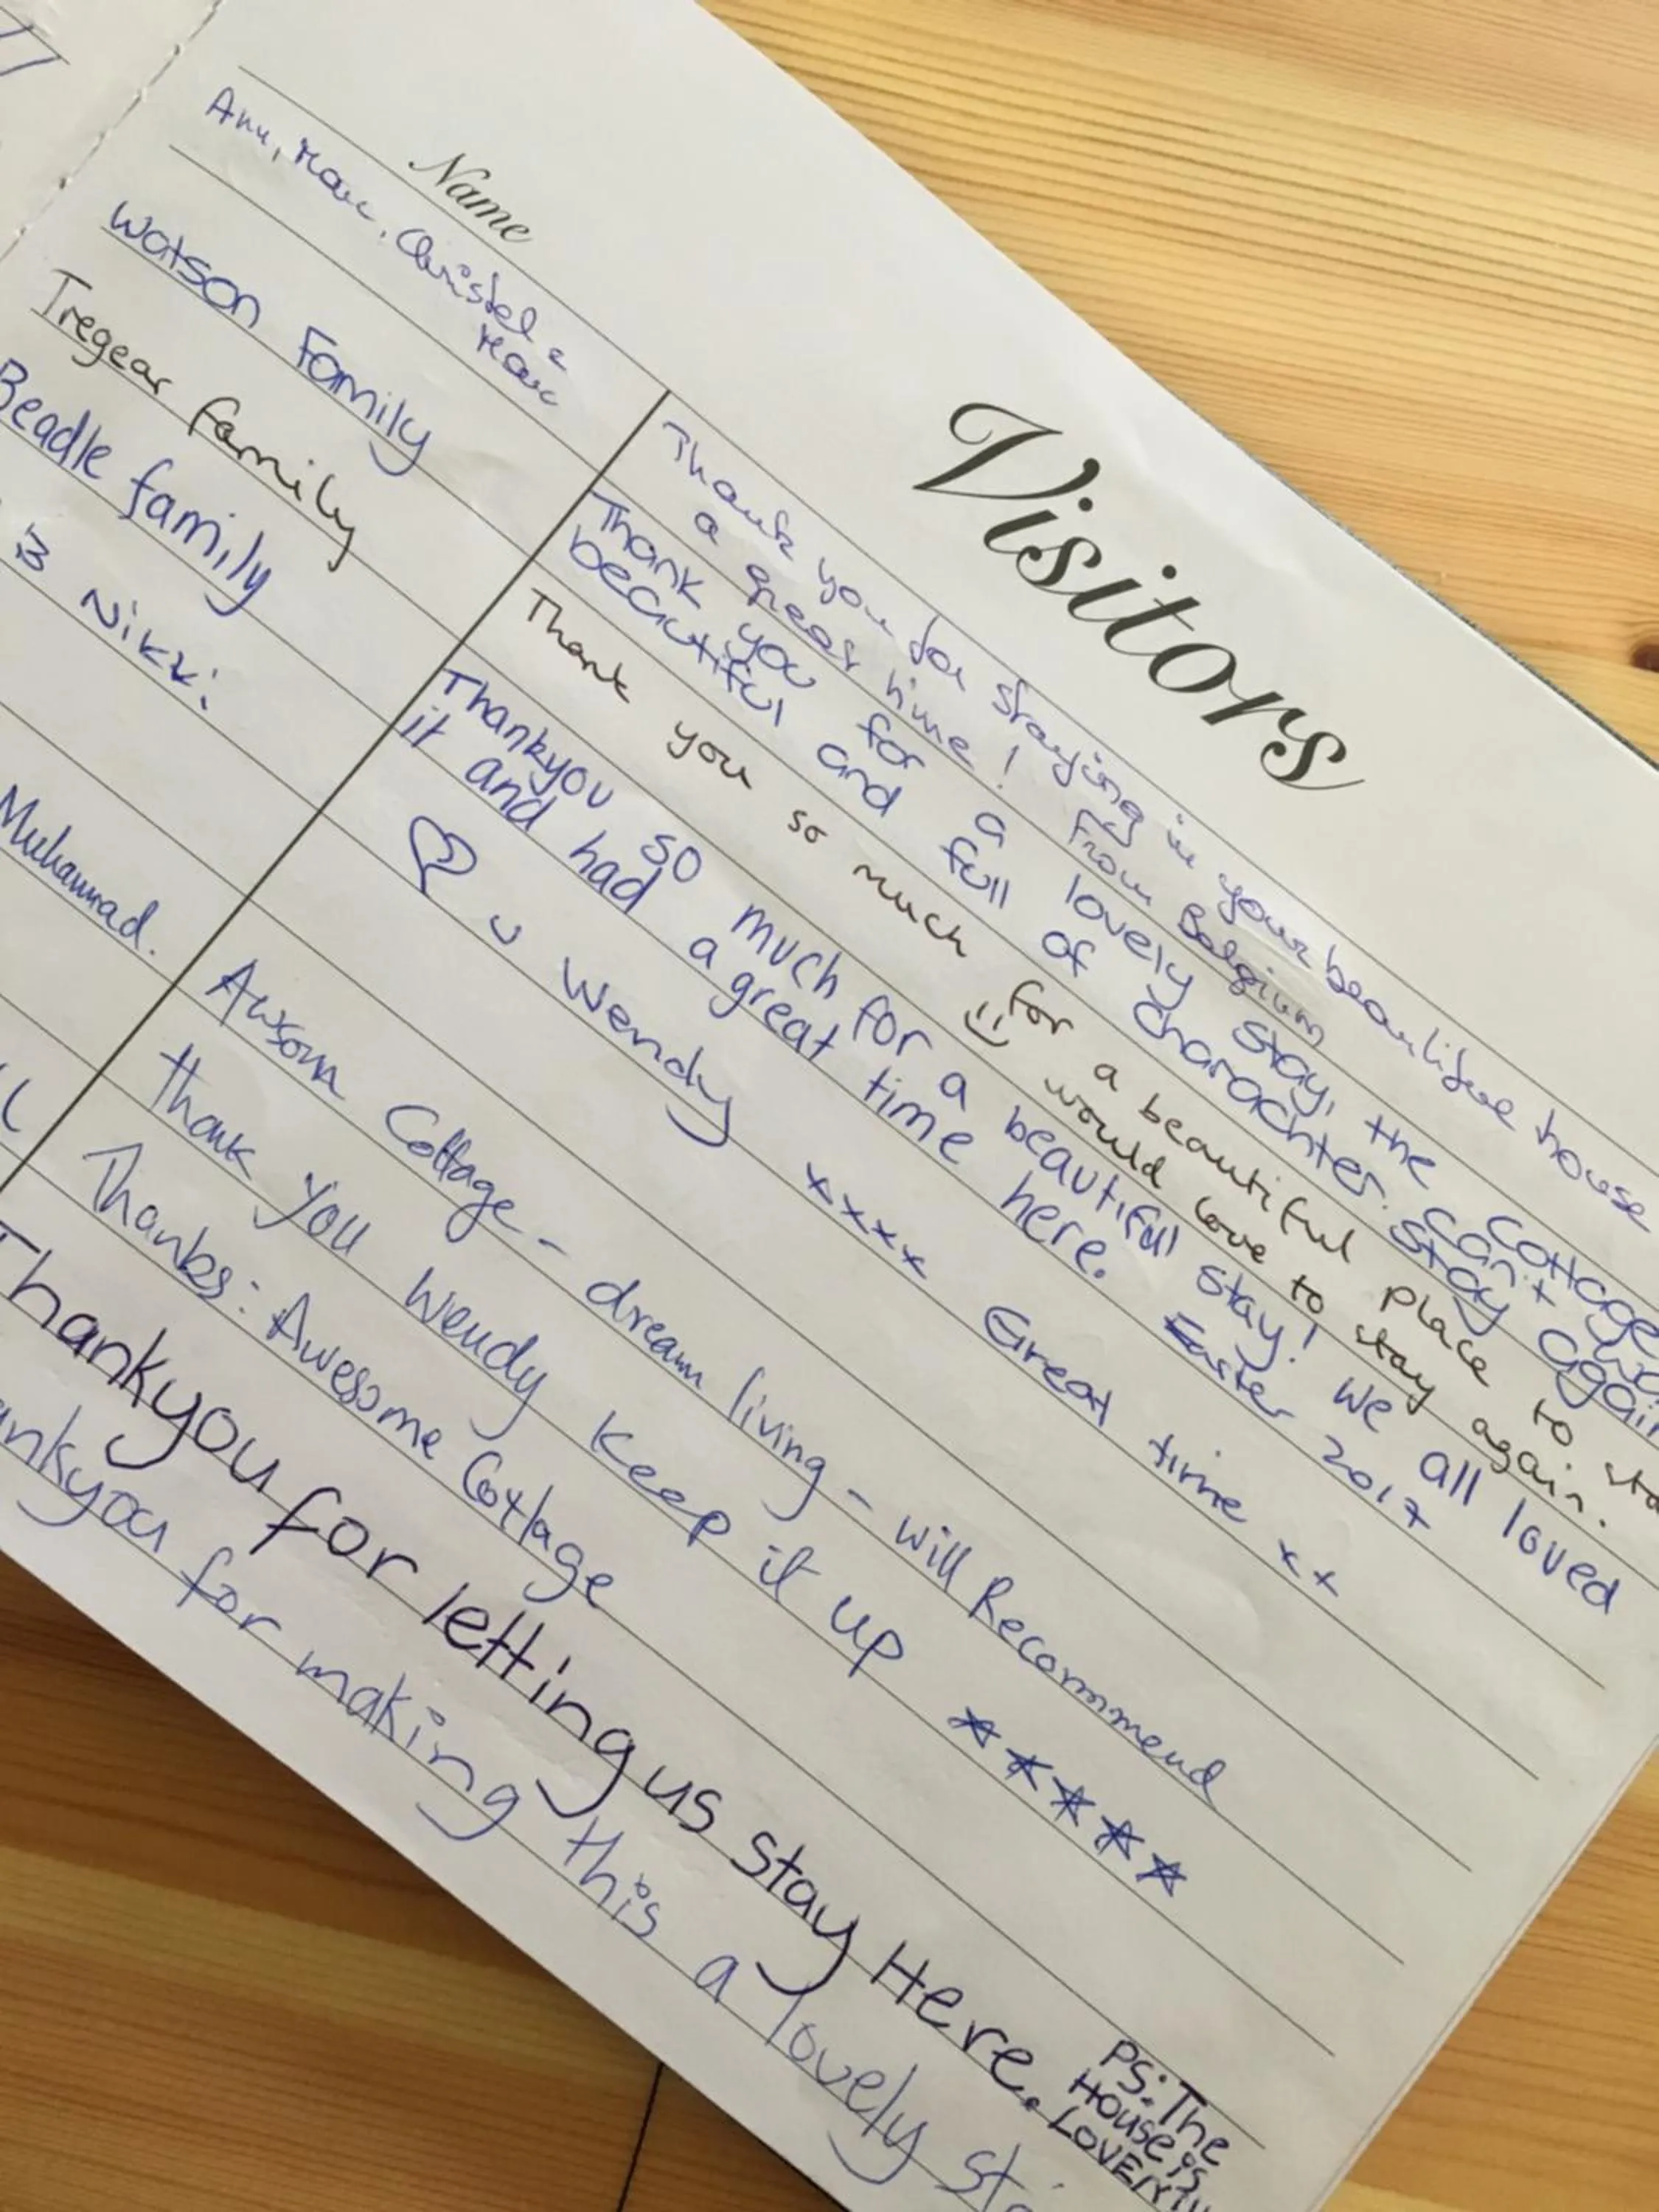 Visitors
Name
Ann, Marc, Christel &
Marc
Thank you for staying in your beautifue house
a great time! From Belgium
Watson Family
Thank you for a lovely stay, the cottage
beautiful and full of charachter. can't
stay again
Tregear family
Thank you so much for a beautiful place to
would love to stay again.
Beadle family
Thankyou so much for a beautiful stay! we all loved
it and had a great time here. Easter 2017
Nikki
u Wendy xxxx Great time xx
Muhammad.
Awsom Cottage - dream living - will Recommend
Thank you Wendy Keep it up *****
Thanks: Awesome Cottage
Thankyou for letting us stay Here. PS: The
House is
for making this a lovely